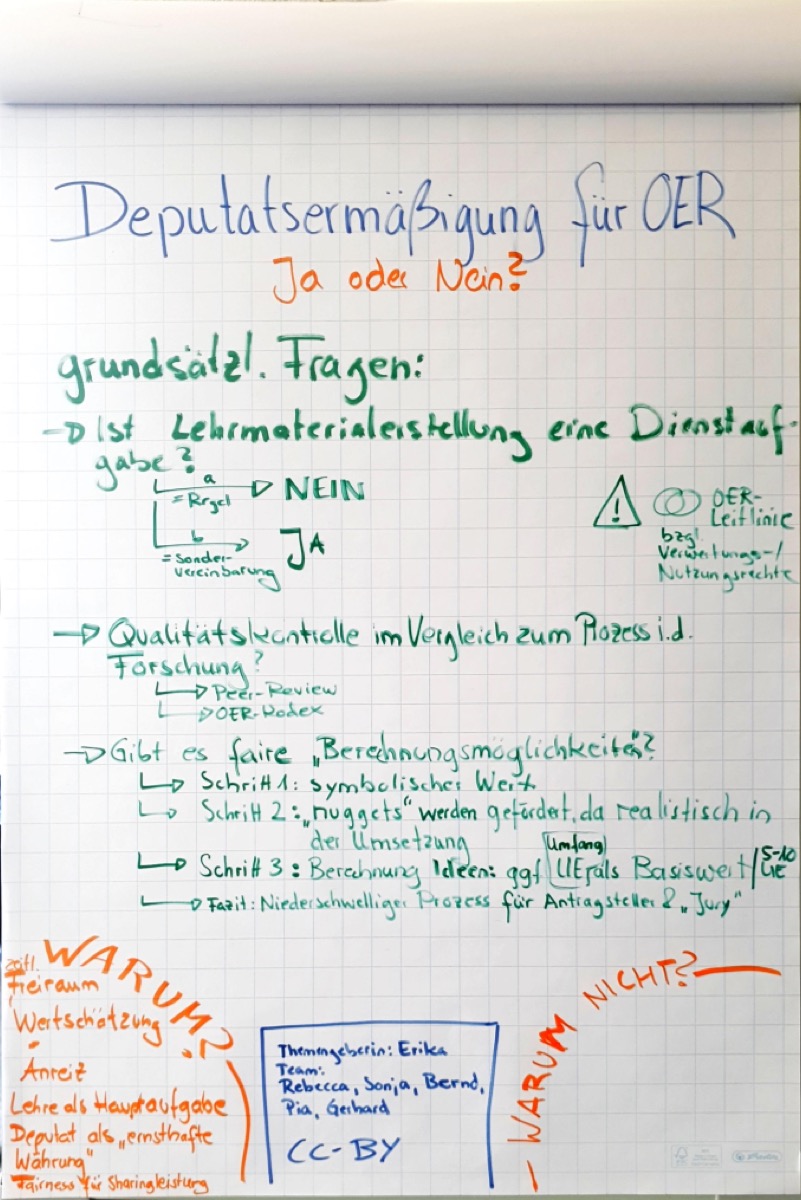 Deputatsermäßigung für OER
Ja oder Nein?
grundsätzl. Fragen:
→ Ist Lehrmaterialerstellung eine Dienstauf-
gabe?
a
= Regel
→ NEIN
b
= Sonder-
vereinbarung
JA
OER-
Leitlinie
bzgl.
Verwertungs-/
Nutzungsrechte
→ Qualitätskontrolle im Vergleich zum Prozess i.d.
Forschung?
→ Peer-Review
→ OER-Kodex
→ Gibt es faire „Berechnungsmöglichkeiten"?
→ Schritt 1: symbolischer Wert
→ Schritt 2: „nuggets" werden gefördert, da realistisch in
der Umsetzung
Umfang
→ Schritt 3: Berechnung Ideen: ggf. UE als Basiswert / 5-10
UE
→ Fazit: Niederschwelliger Prozess für Antragsteller & „Jury"
WARUM?
zeitl.
Freiraum
Wertschätzung
Anreiz
Lehre als Hauptaufgabe
Deputat als „ernsthafte
Währung"
Fairness für Sharingleistung
Themengeberin: Erika
Team:
Rebecca, Sonja, Bernd,
Pia, Gerhard
CC-BY
- WARUM NICHT? -